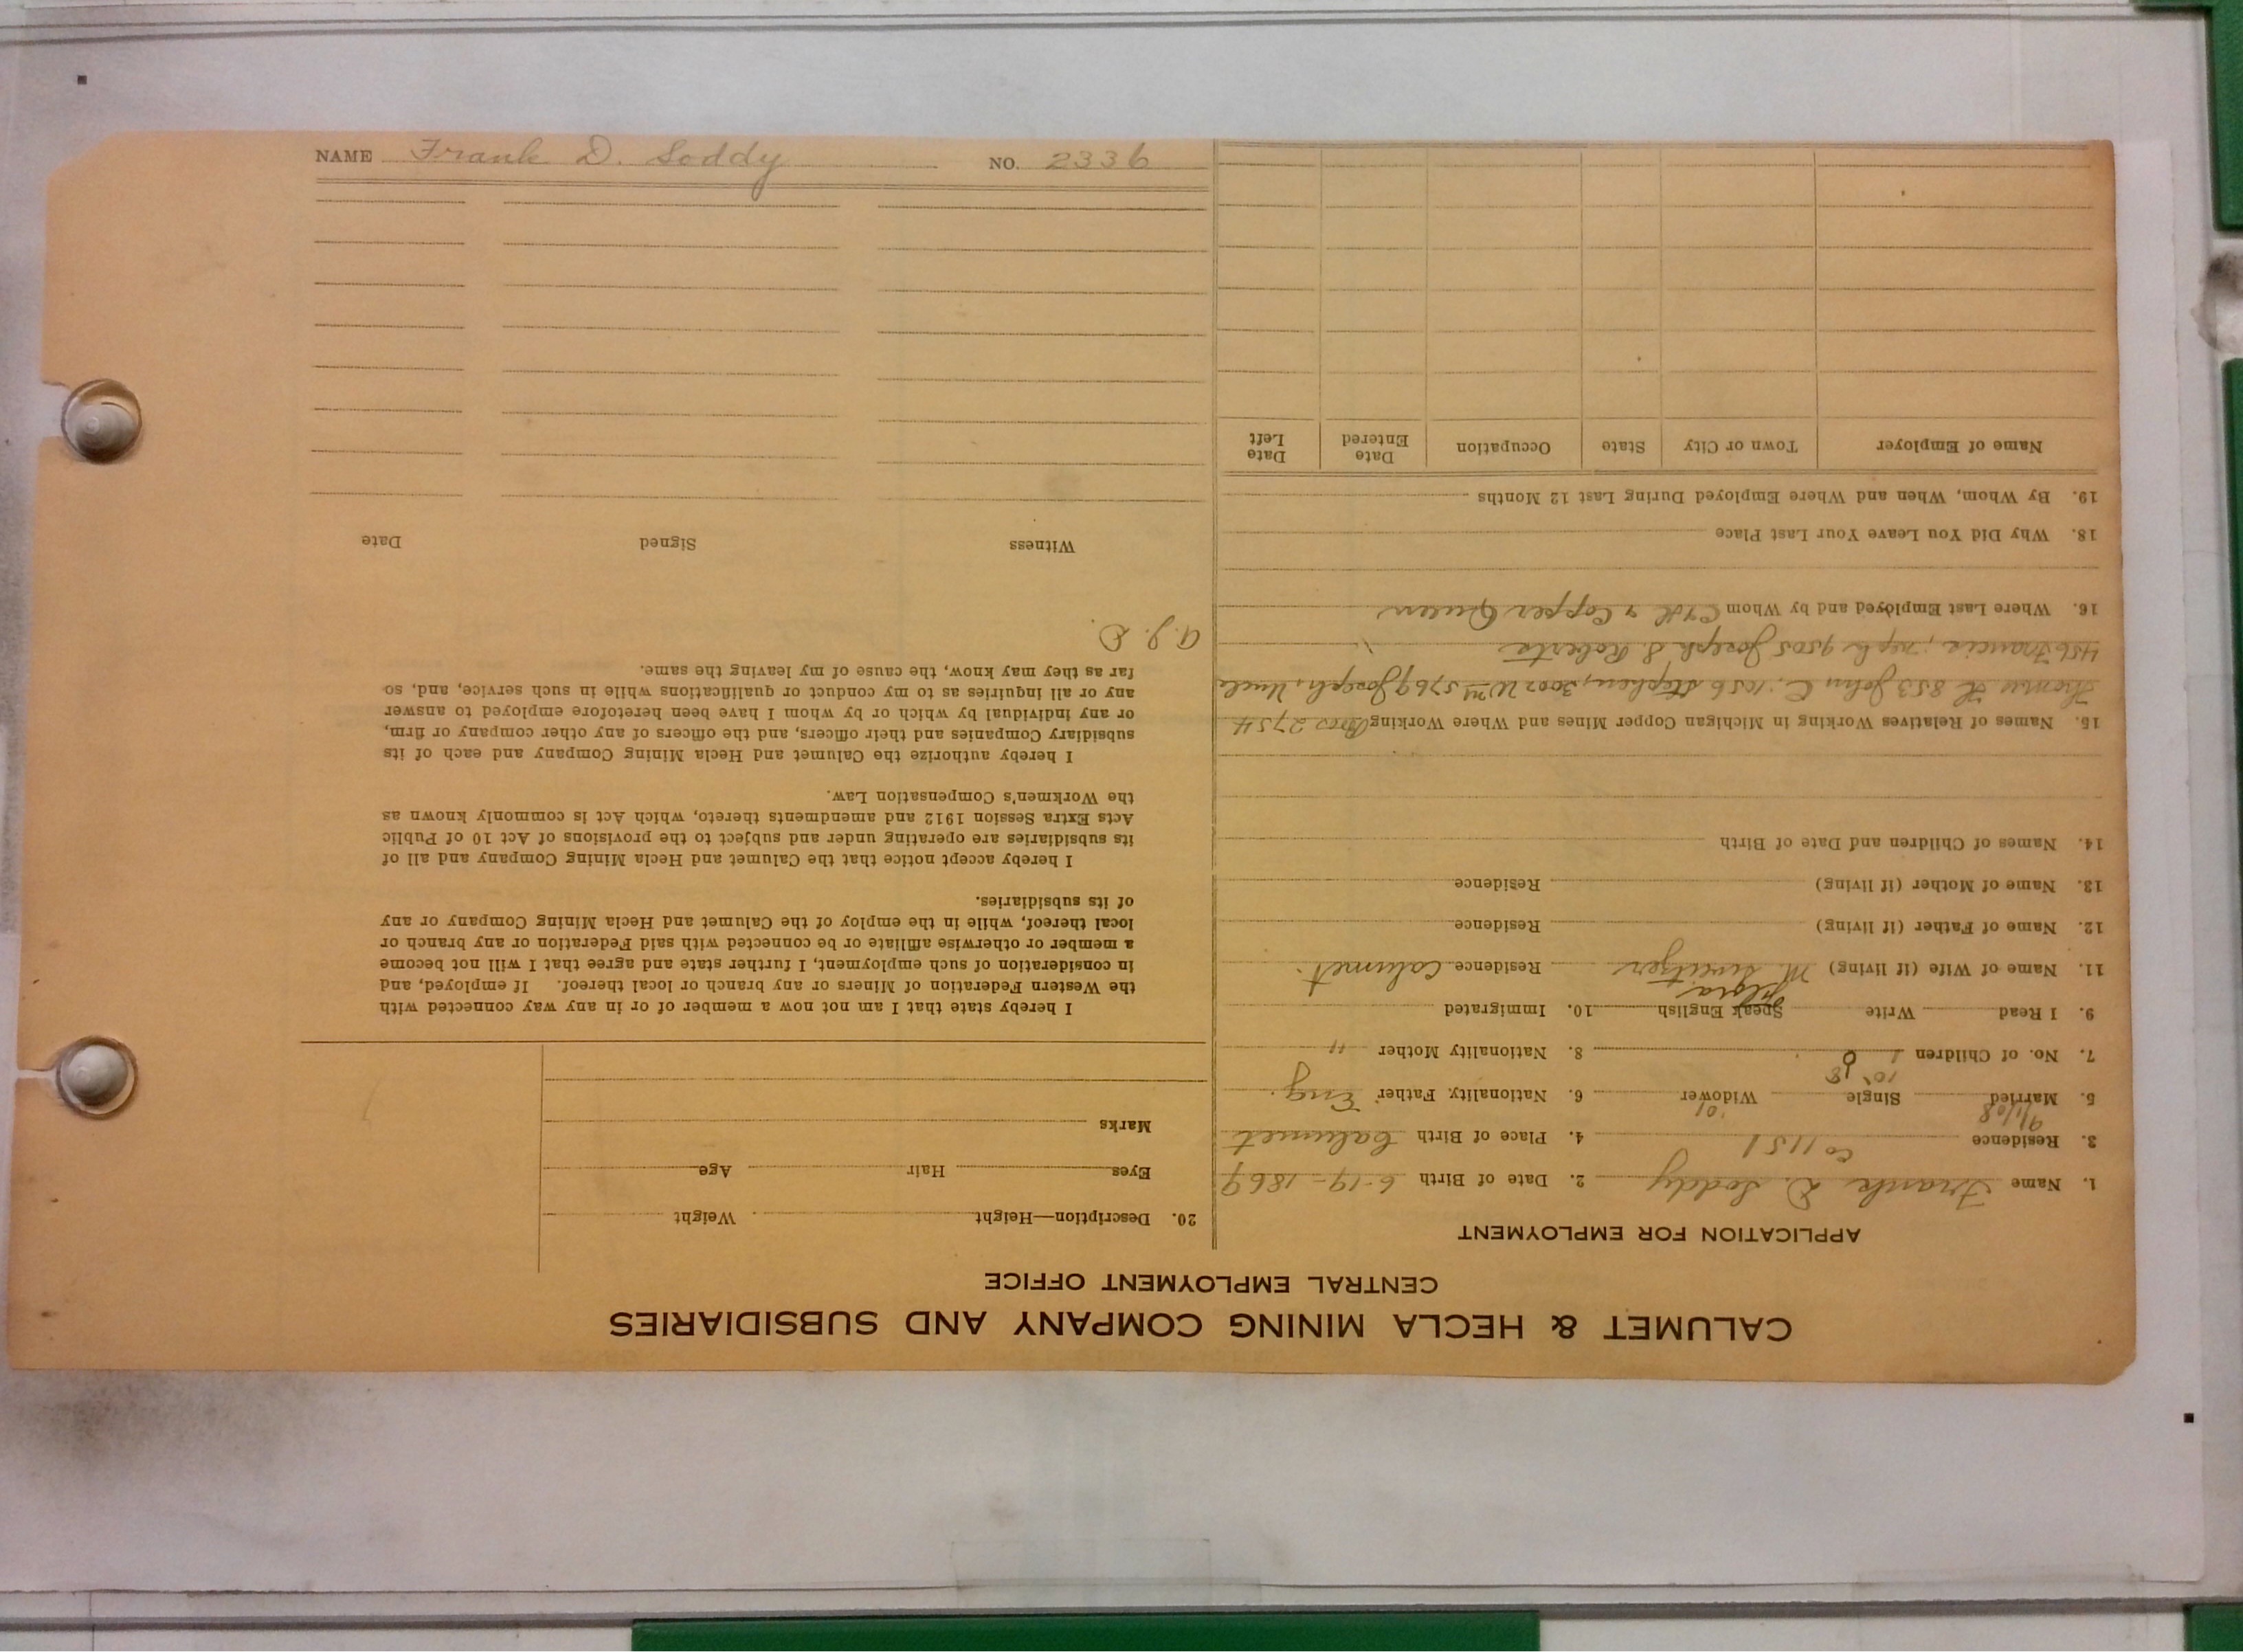 NAME Frank D. Soddy NO. 2336
CALUMET & HECLA MINING COMPANY AND SUBSIDIARIES
CENTRAL EMPLOYMENT OFFICE
APPLICATION FOR EMPLOYMENT
1. Name Frank D. Soddy 2. Date of Birth 6-19-1869
3. Residence Co 1151 4. Place of Birth Calumet
9/1/08 10 '18 '01
5. Married Single Widower 6. Nationality, Father Eng.
7. No. of Children 1 0 8. Nationality Mother "
9. I Read Write Speak English 10. Immigrated
11. Name of Wife (if living) Residence Calumet.
12. Name of Father (if living) Residence
13. Name of Mother (if living) Residence
14. Names of Children and Date of Birth
15. Names of Relatives Working in Michigan Copper Mines and Where Working Bros 2754
Thomas H 853 John C. 1056 Stephen, 3002 Wm 5769 Joseph, Uncle
456 Francis, neph 9505 Joseph S. Roberts
16. Where Last Employed and by Whom C & H & Copper Queen
18. Why Did You Leave Your Last Place
19. By Whom, When and Where Employed During Last 12 Months
Name of Employer Town or City State Occupation Date Entered Date Left
20. Description—Height Weight
Eyes Hair Age
Marks
I hereby state that I am not now a member of or in any way connected with
the Western Federation of Miners or any branch or local thereof. If employed, and
in consideration of such employment, I further state and agree that I will not become
a member or otherwise affiliate or be connected with said Federation or any branch or
local thereof, while in the employ of the Calumet and Hecla Mining Company or any
of its subsidiaries.
I hereby accept notice that the Calumet and Hecla Mining Company and all of
its subsidiaries are operating under and subject to the provisions of Act 10 of Public
Acts Extra Session 1912 and amendments thereto, which Act is commonly known as
the Workmen's Compensation Law.
I hereby authorize the Calumet and Hecla Mining Company and each of its
subsidiary Companies and their officers, and the officers of any other company or firm,
or any individual by which or by whom I have been heretofore employed to answer
any or all inquiries as to my conduct or qualifications while in such service, and, so
far as they may know, the cause of my leaving the same.
a. J. D.
Witness Signed Date